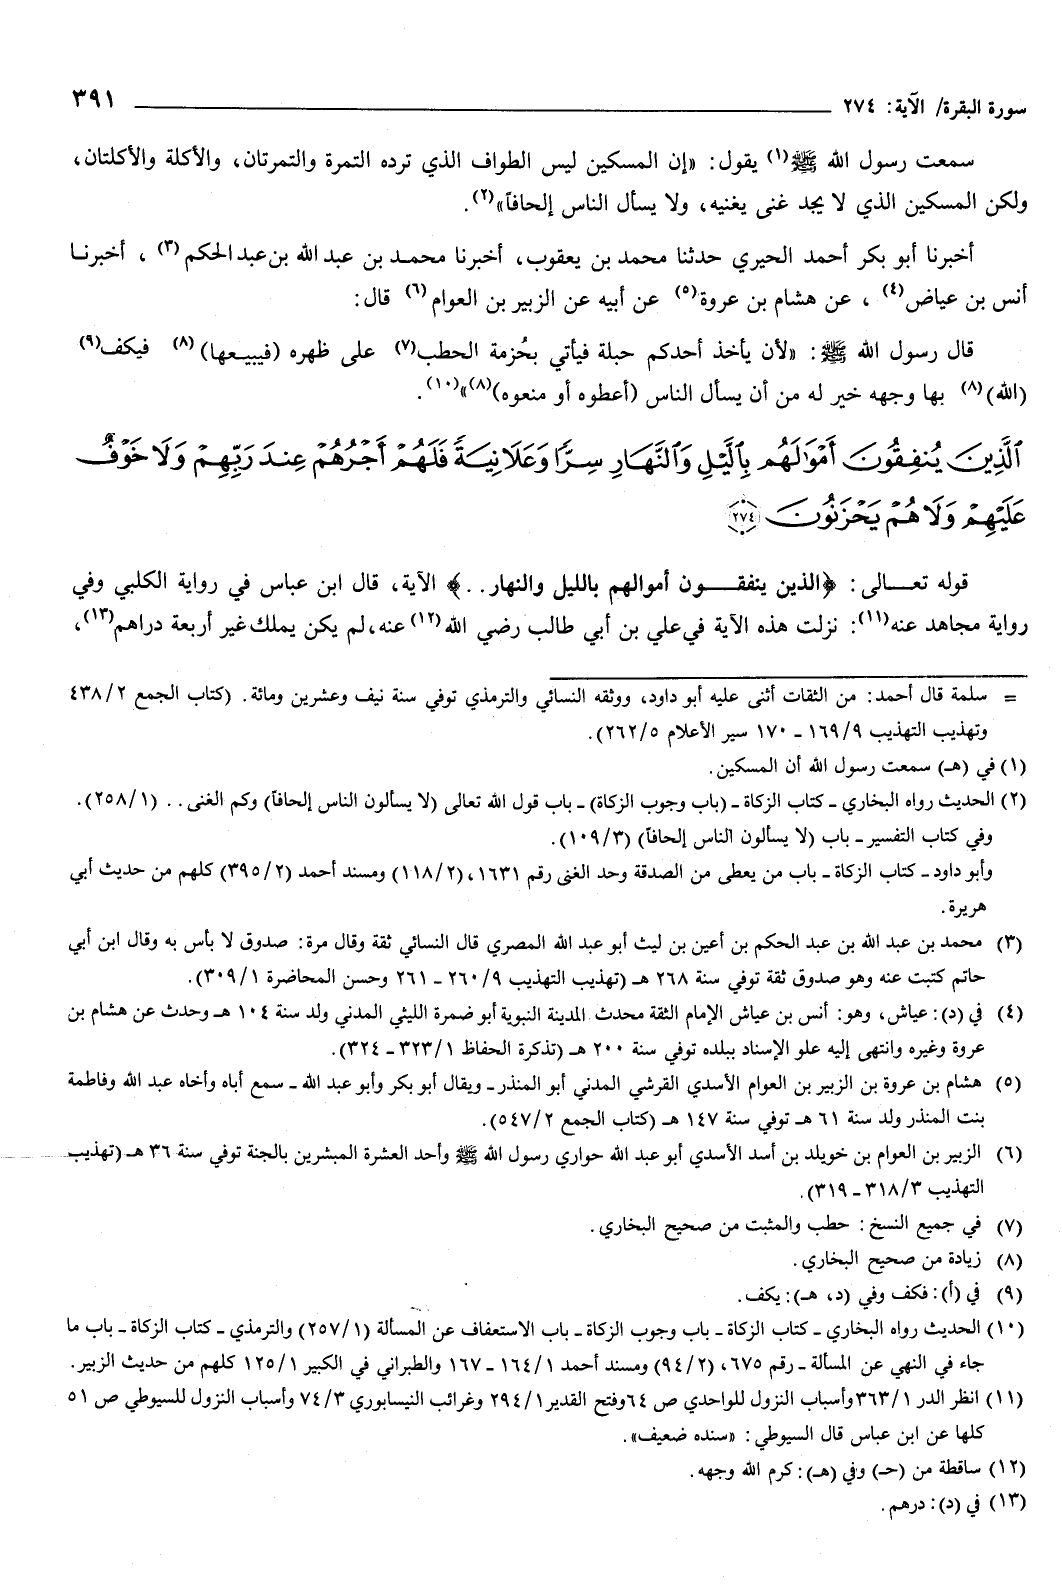 سورة البقرة/ الآية: ٢٧٤ ٣٩١
سمعت رسول الله ﷺ(١) يقول: «إن المسكين ليس الطواف الذي ترده التمرة والتمرتان، والأكلة والأكلتان،
ولكن المسكين الذي لا يجد غنى يغنيه، ولا يسأل الناس إلحافاً»(٢).
أخبرنا أبو بكر أحمد الحيري حدثنا محمد بن يعقوب، أخبرنا محمد بن عبد الله بن عبد الحكم(٣)، أخبرنا
أنس بن عياض(٤)، عن هشام بن عروة(٥) عن أبيه عن الزبير بن العوام(٦) قال:
قال رسول الله ﷺ: «لأن يأخذ أحدكم حبلة فيأتي بحُزمة الحطب(٧) على ظهره (فيبيعها)(٨) فيكف(٩)
(الله)(٨) بها وجهه خير له من أن يسأل الناس (أعطوه أو منعوه)(٨)»(١٠).
ٱلَّذِينَ يُنفِقُونَ أَمْوَٰلَهُم بِٱلَّيْلِ وَٱلنَّهَارِ سِرًّا وَعَلَانِيَةً فَلَهُمْ أَجْرُهُمْ عِندَ رَبِّهِمْ وَلَا خَوْفٌ
عَلَيْهِمْ وَلَا هُمْ يَحْزَنُونَ ٢٧٤
قوله تعـــالى: ﴿الذين ينفقـــون أموالهم بالليل والنهار..﴾ الآية، قال ابن عباس في رواية الكلبي وفي
رواية مجاهد عنه(١١): نزلت هذه الآية في علي بن أبي طالب رضي الله(١٢) عنه، لم يكن يملك غير أربعة دراهم(١٣)،
= سلمة قال أحمد: من الثقات أثنى عليه أبو داود، ووثقه النسائي والترمذي توفي سنة نيف وعشرين ومائة. (كتاب الجمع ٤٣٨/٢
وتهذيب التهذيب ١٦٩/٩ - ١٧٠ سير الأعلام ٢٦٢/٥).
(١) في (هـ) سمعت رسول الله أن المسكين.
(٢) الحديث رواه البخاري - كتاب الزكاة - (باب وجوب الزكاة) - باب قول الله تعالى (لا يسألون الناس إلحافاً) وكم الغنى.. (٢٥٨/١).
وفي كتاب التفسير - باب (لا يسألون الناس إلحافاً) (١٠٩/٣).
وأبو داود - كتاب الزكاة - باب من يعطى من الصدقة وحد الغنى رقم ١٦٣١، (١١٨/٢) ومسند أحمد (٣٩٥/٢) كلهم من حديث أبي
هريرة.
(٣) محمد بن عبد الله بن عبد الحكم بن أعين بن ليث أبو عبد الله المصري قال النسائي ثقة وقال مرة: صدوق لا بأس به وقال ابن أبي
حاتم كتبت عنه وهو صدوق ثقة توفي سنة ٢٦٨ هـ (تهذيب التهذيب ٢٦٠/٩ - ٢٦١ وحسن المحاضرة ٣٠٩/١).
(٤) في (د): عياش، وهو: أنس بن عياش الإمام الثقة محدث المدينة النبوية أبو ضمرة الليثي المدني ولد سنة ١٠٤ هـ وحدث عن هشام بن
عروة وغيره وانتهى إليه علو الإسناد ببلده توفي سنة ٢٠٠ هـ (تذكرة الحفاظ ٣٢٣/١ - ٣٢٤).
(٥) هشام بن عروة بن الزبير بن العوام الأسدي القرشي المدني أبو المنذر - ويقال أبو بكر وأبو عبد الله - سمع أباه وأخاه عبد الله وفاطمة
بنت المنذر ولد سنة ٦١ هـ توفي سنة ١٤٧ هـ (كتاب الجمع ٥٤٧/٢).
(٦) الزبير بن العوام بن خويلد بن أسد الأسدي أبو عبد الله حواري رسول الله ﷺ وأحد العشرة المبشرين بالجنة توفي سنة ٣٦ هـ (تهذيب
التهذيب ٣١٨/٣ - ٣١٩).
(٧) في جميع النسخ: حطب والمثبت من صحيح البخاري.
(٨) زيادة من صحيح البخاري.
(٩) في (أ): فكف وفي (د، هـ): يكف.
(١٠) الحديث رواه البخاري - كتاب الزكاة - باب وجوب الزكاة - باب الاستعفاف عن المسألة (٢٥٧/١) والترمذي - كتاب الزكاة - باب ما
جاء في النهي عن المسألة - رقم ٦٧٥، (٩٤/٢) ومسند أحمد ١٦٤/١ - ١٦٧ والطبراني في الكبير ١٢٥/١ كلهم من حديث الزبير.
(١١) انظر الدر ٣٦٣/١ وأسباب النزول للواحدي ص ٦٤ وفتح القدير ٢٩٤/١ وغرائب النيسابوري ٧٤/٣ وأسباب النزول للسيوطي ص ٥١
كلها عن ابن عباس قال السيوطي: «سنده ضعيف».
(١٢) ساقطة من (حـ) وفي (هـ): كرم الله وجهه.
(١٣) في (د): درهم.